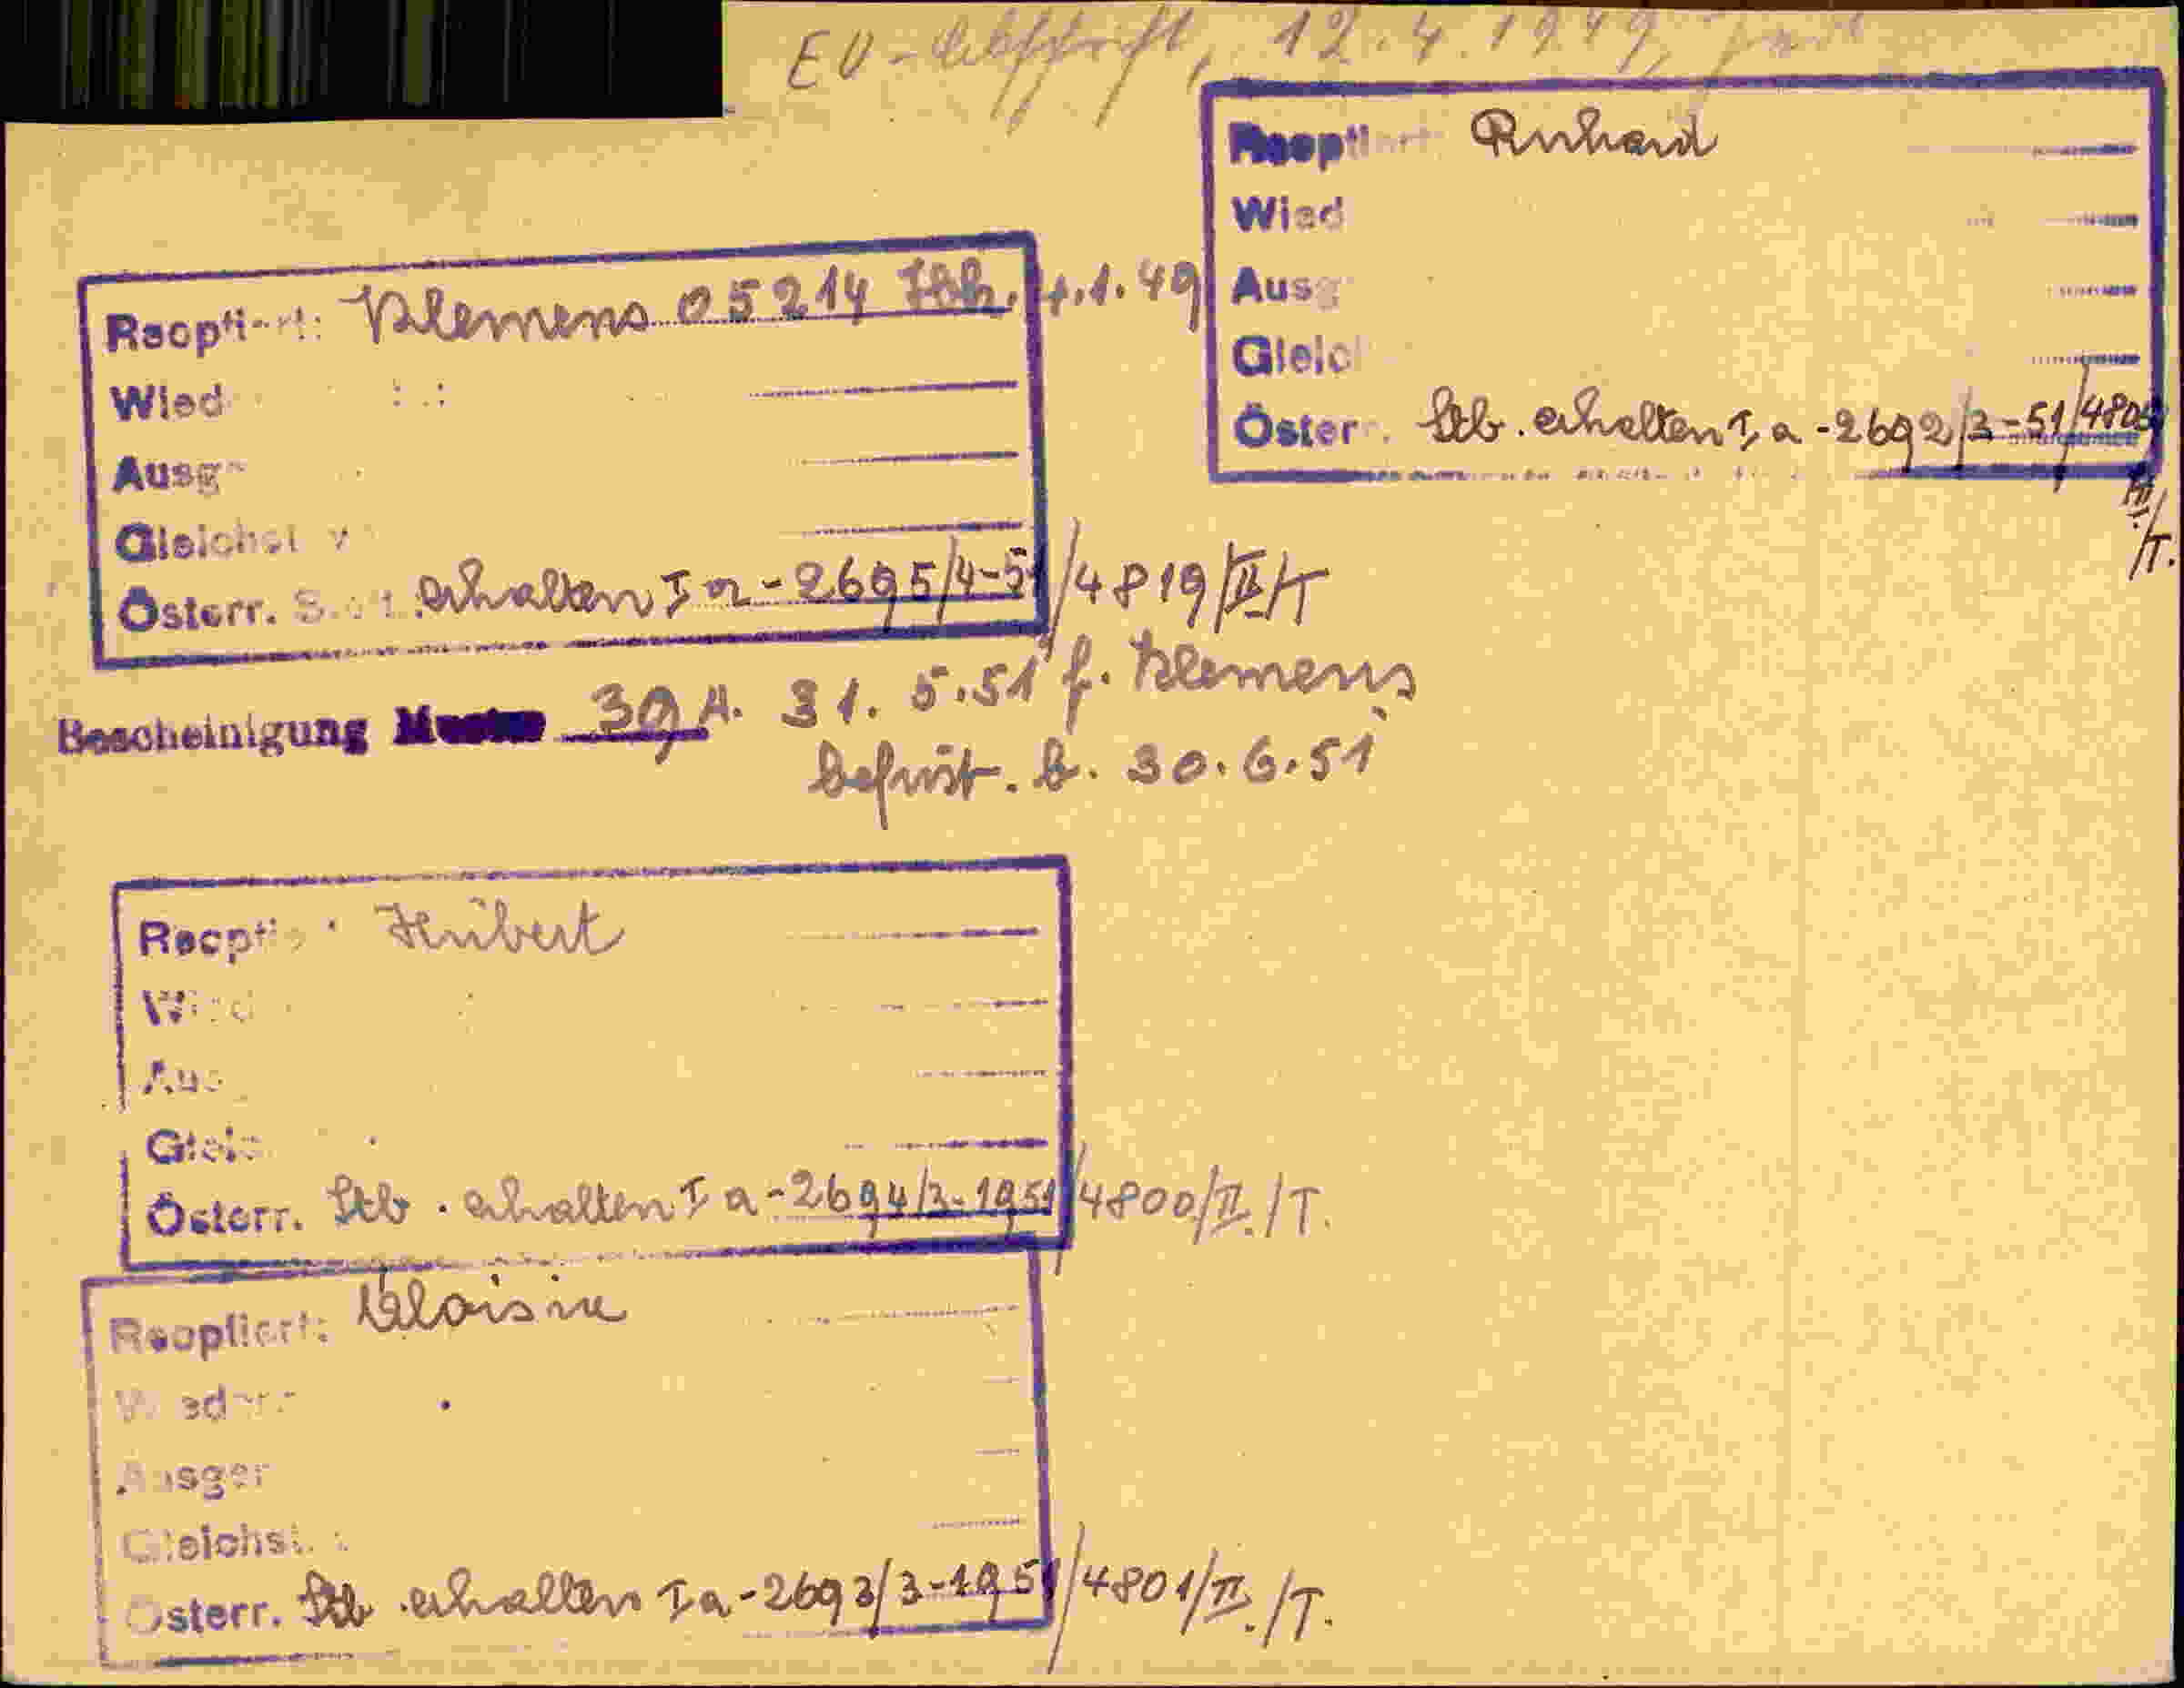 EU-Abschrift, 12.4.1949,
Reopt
Wied
Ausg
Gleich
Österr. Stb. erhalten I a-2692/3-51/480
II
/T.
Reoptiert: Klemens 05214 Ibk. .1.49
Wied
Ausg
Gleichst
Österr. erhalten I a-2695/4-51/4819/II/T
Bescheinigung Muster 39 A. 31.5.51 f. Klemens
befrist. b. 30.6.51
Reoptie Hubert
Wied
Aus
Gleic
Österr. Stb. erhalten I a-2694/3-1951/4800/II./T.
Reoptiert: Aloisia
Wieder
Ausger
Gleichst.:
Österr. Stb. erhalten I a-2693/3-1951/4801/II./T.